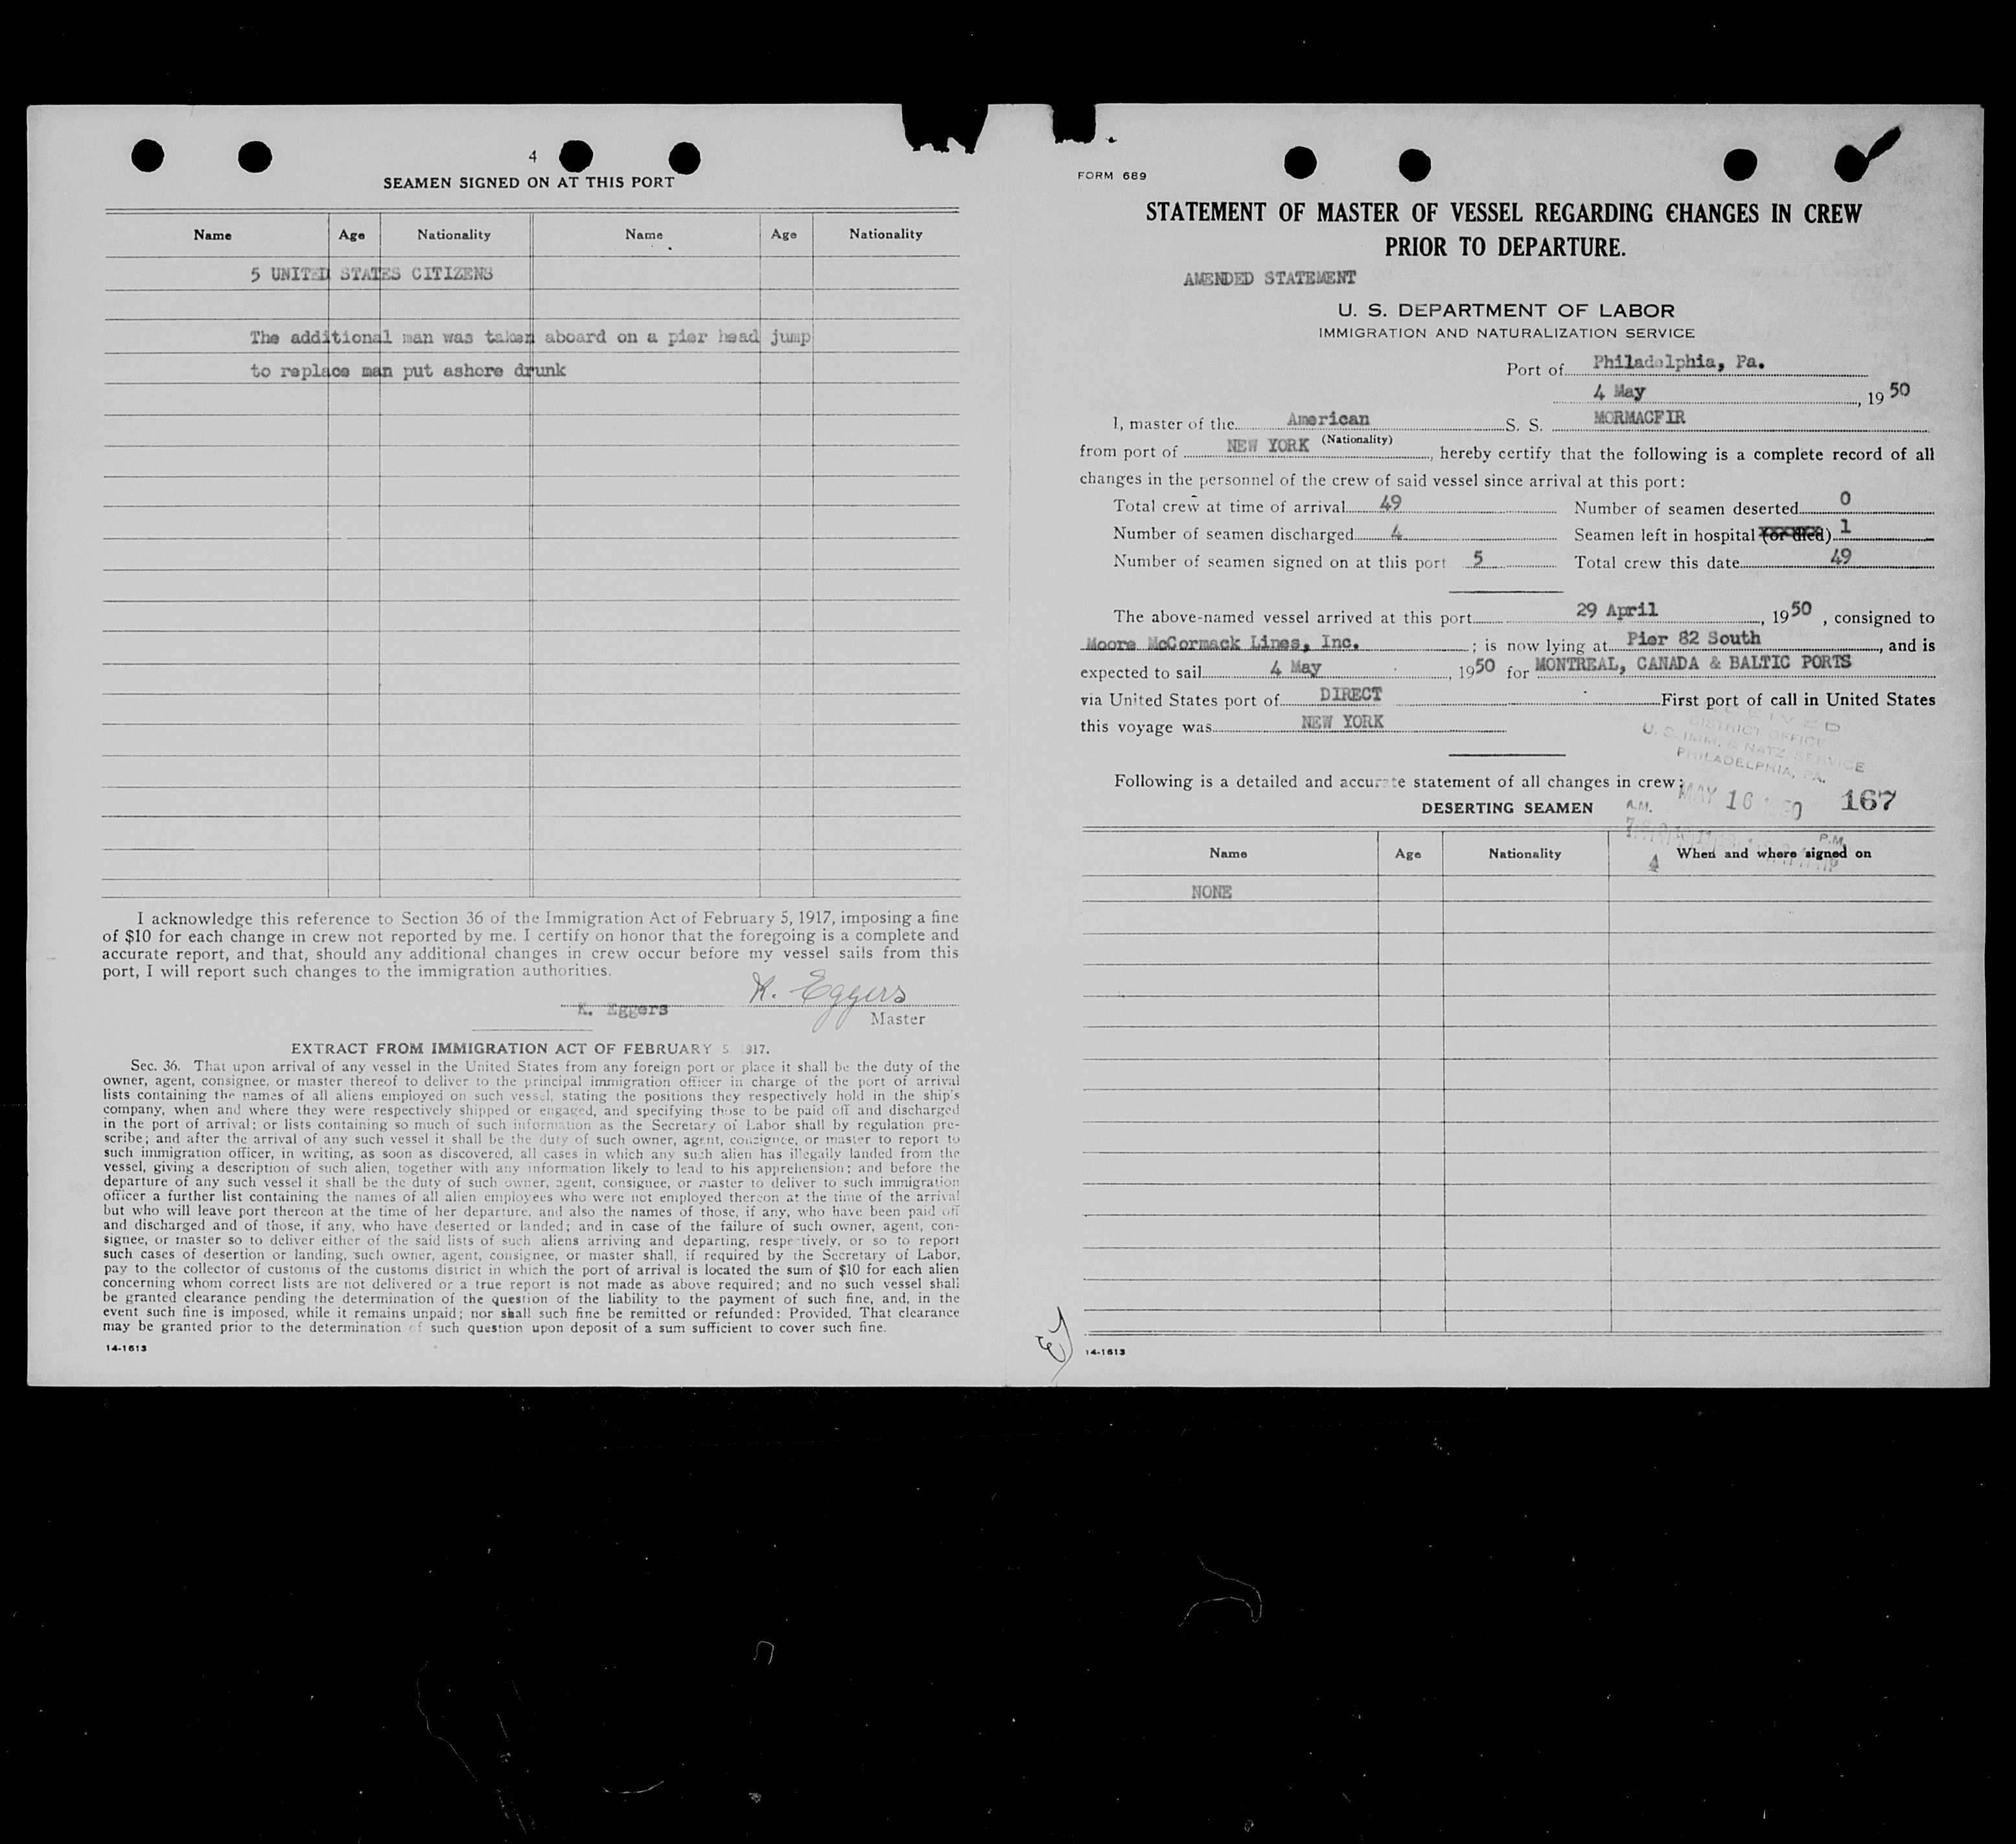 4
SEAMEN SIGNED ON AT THIS PORT
Name Age Nationality Name Age Nationality
5 UNITED STATES CITIZENS
The additional man was taken aboard on a pier head jump
to replace man put ashore drunk
I acknowledge this reference to Section 36 of the Immigration Act of February 5, 1917, imposing a fine
of $10 for each change in crew not reported by me. I certify on honor that the foregoing is a complete and
accurate report, and that, should any additional changes in crew occur before my vessel sails from this
port, I will report such changes to the immigration authorities.
K. Eggers
K. Eggers
Master
EXTRACT FROM IMMIGRATION ACT OF FEBRUARY 5, 1917.
Sec. 36. That upon arrival of any vessel in the United States from any foreign port or place it shall be the duty of the
owner, agent, consignee, or master thereof to deliver to the principal immigration officer in charge of the port of arrival
lists containing the names of all aliens employed on such vessel, stating the positions they respectively hold in the ship's
company, when and where they were respectively shipped or engaged, and specifying those to be paid off and discharged
in the port of arrival; or lists containing so much of such information as the Secretary of Labor shall by regulation pre-
scribe; and after the arrival of any such vessel it shall be the duty of such owner, agent, consignee, or master to report to
such immigration officer, in writing, as soon as discovered, all cases in which any such alien has illegally landed from the
vessel, giving a description of such alien, together with any information likely to lead to his apprehension; and before the
departure of any such vessel it shall be the duty of such owner, agent, consignee, or master to deliver to such immigration
officer a further list containing the names of all alien employees who were not employed thereon at the time of the arrival
but who will leave port thereon at the time of her departure, and also the names of those, if any, who have been paid off
and discharged and of those, if any, who have deserted or landed; and in case of the failure of such owner, agent, con-
signee, or master so to deliver either of the said lists of such aliens arriving and departing, respectively, or so to report
such cases of desertion or landing, such owner, agent, consignee, or master shall, if required by the Secretary of Labor,
pay to the collector of customs of the customs district in which the port of arrival is located the sum of $10 for each alien
concerning whom correct lists are not delivered or a true report is not made as above required; and no such vessel shall
be granted clearance pending the determination of the question of the liability to the payment of such fine, and, in the
event such fine is imposed, while it remains unpaid; nor shall such fine be remitted or refunded: Provided, That clearance
may be granted prior to the determination of such question upon deposit of a sum sufficient to cover such fine.
14-1613
FORM 689
STATEMENT OF MASTER OF VESSEL REGARDING CHANGES IN CREW
PRIOR TO DEPARTURE.
AMENDED STATEMENT
U. S. DEPARTMENT OF LABOR
IMMIGRATION AND NATURALIZATION SERVICE
Port of Philadelphia, Pa.
4 May, 1950
I, master of the American S. S. MORMACFIR
(Nationality)
from port of NEW YORK, hereby certify that the following is a complete record of all
changes in the personnel of the crew of said vessel since arrival at this port:
Total crew at time of arrival 49 Number of seamen deserted 0
Number of seamen discharged 4 Seamen left in hospital (or died) 1
Number of seamen signed on at this port 5 Total crew this date 49
The above-named vessel arrived at this port 29 April, 1950, consigned to
Moore McCormack Lines, Inc.; is now lying at Pier 82 South, and is
expected to sail 4 May, 1950 for MONTREAL, CANADA & BALTIC PORTS
via United States port of DIRECT First port of call in United States
this voyage was NEW YORK
DISTRICT OFFICE
U. S. IMM. & NATZ. SERVICE
PHILADELPHIA, PA.
Following is a detailed and accurate statement of all changes in crew:
MAY 16 1950 167
DESERTING SEAMEN A.M.
P.M.
Name Age Nationality When and where signed on
NONE
14-1613